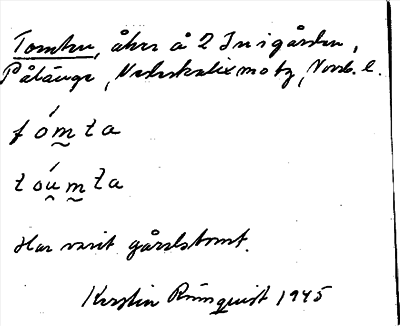 Tomten, åker å 2 Inigården,
Pålänge, Nederkalix mot y, Norrb. l.
fómta
tóumta
Har varit gårdstomt.
Kerstin Rönnquist 1945